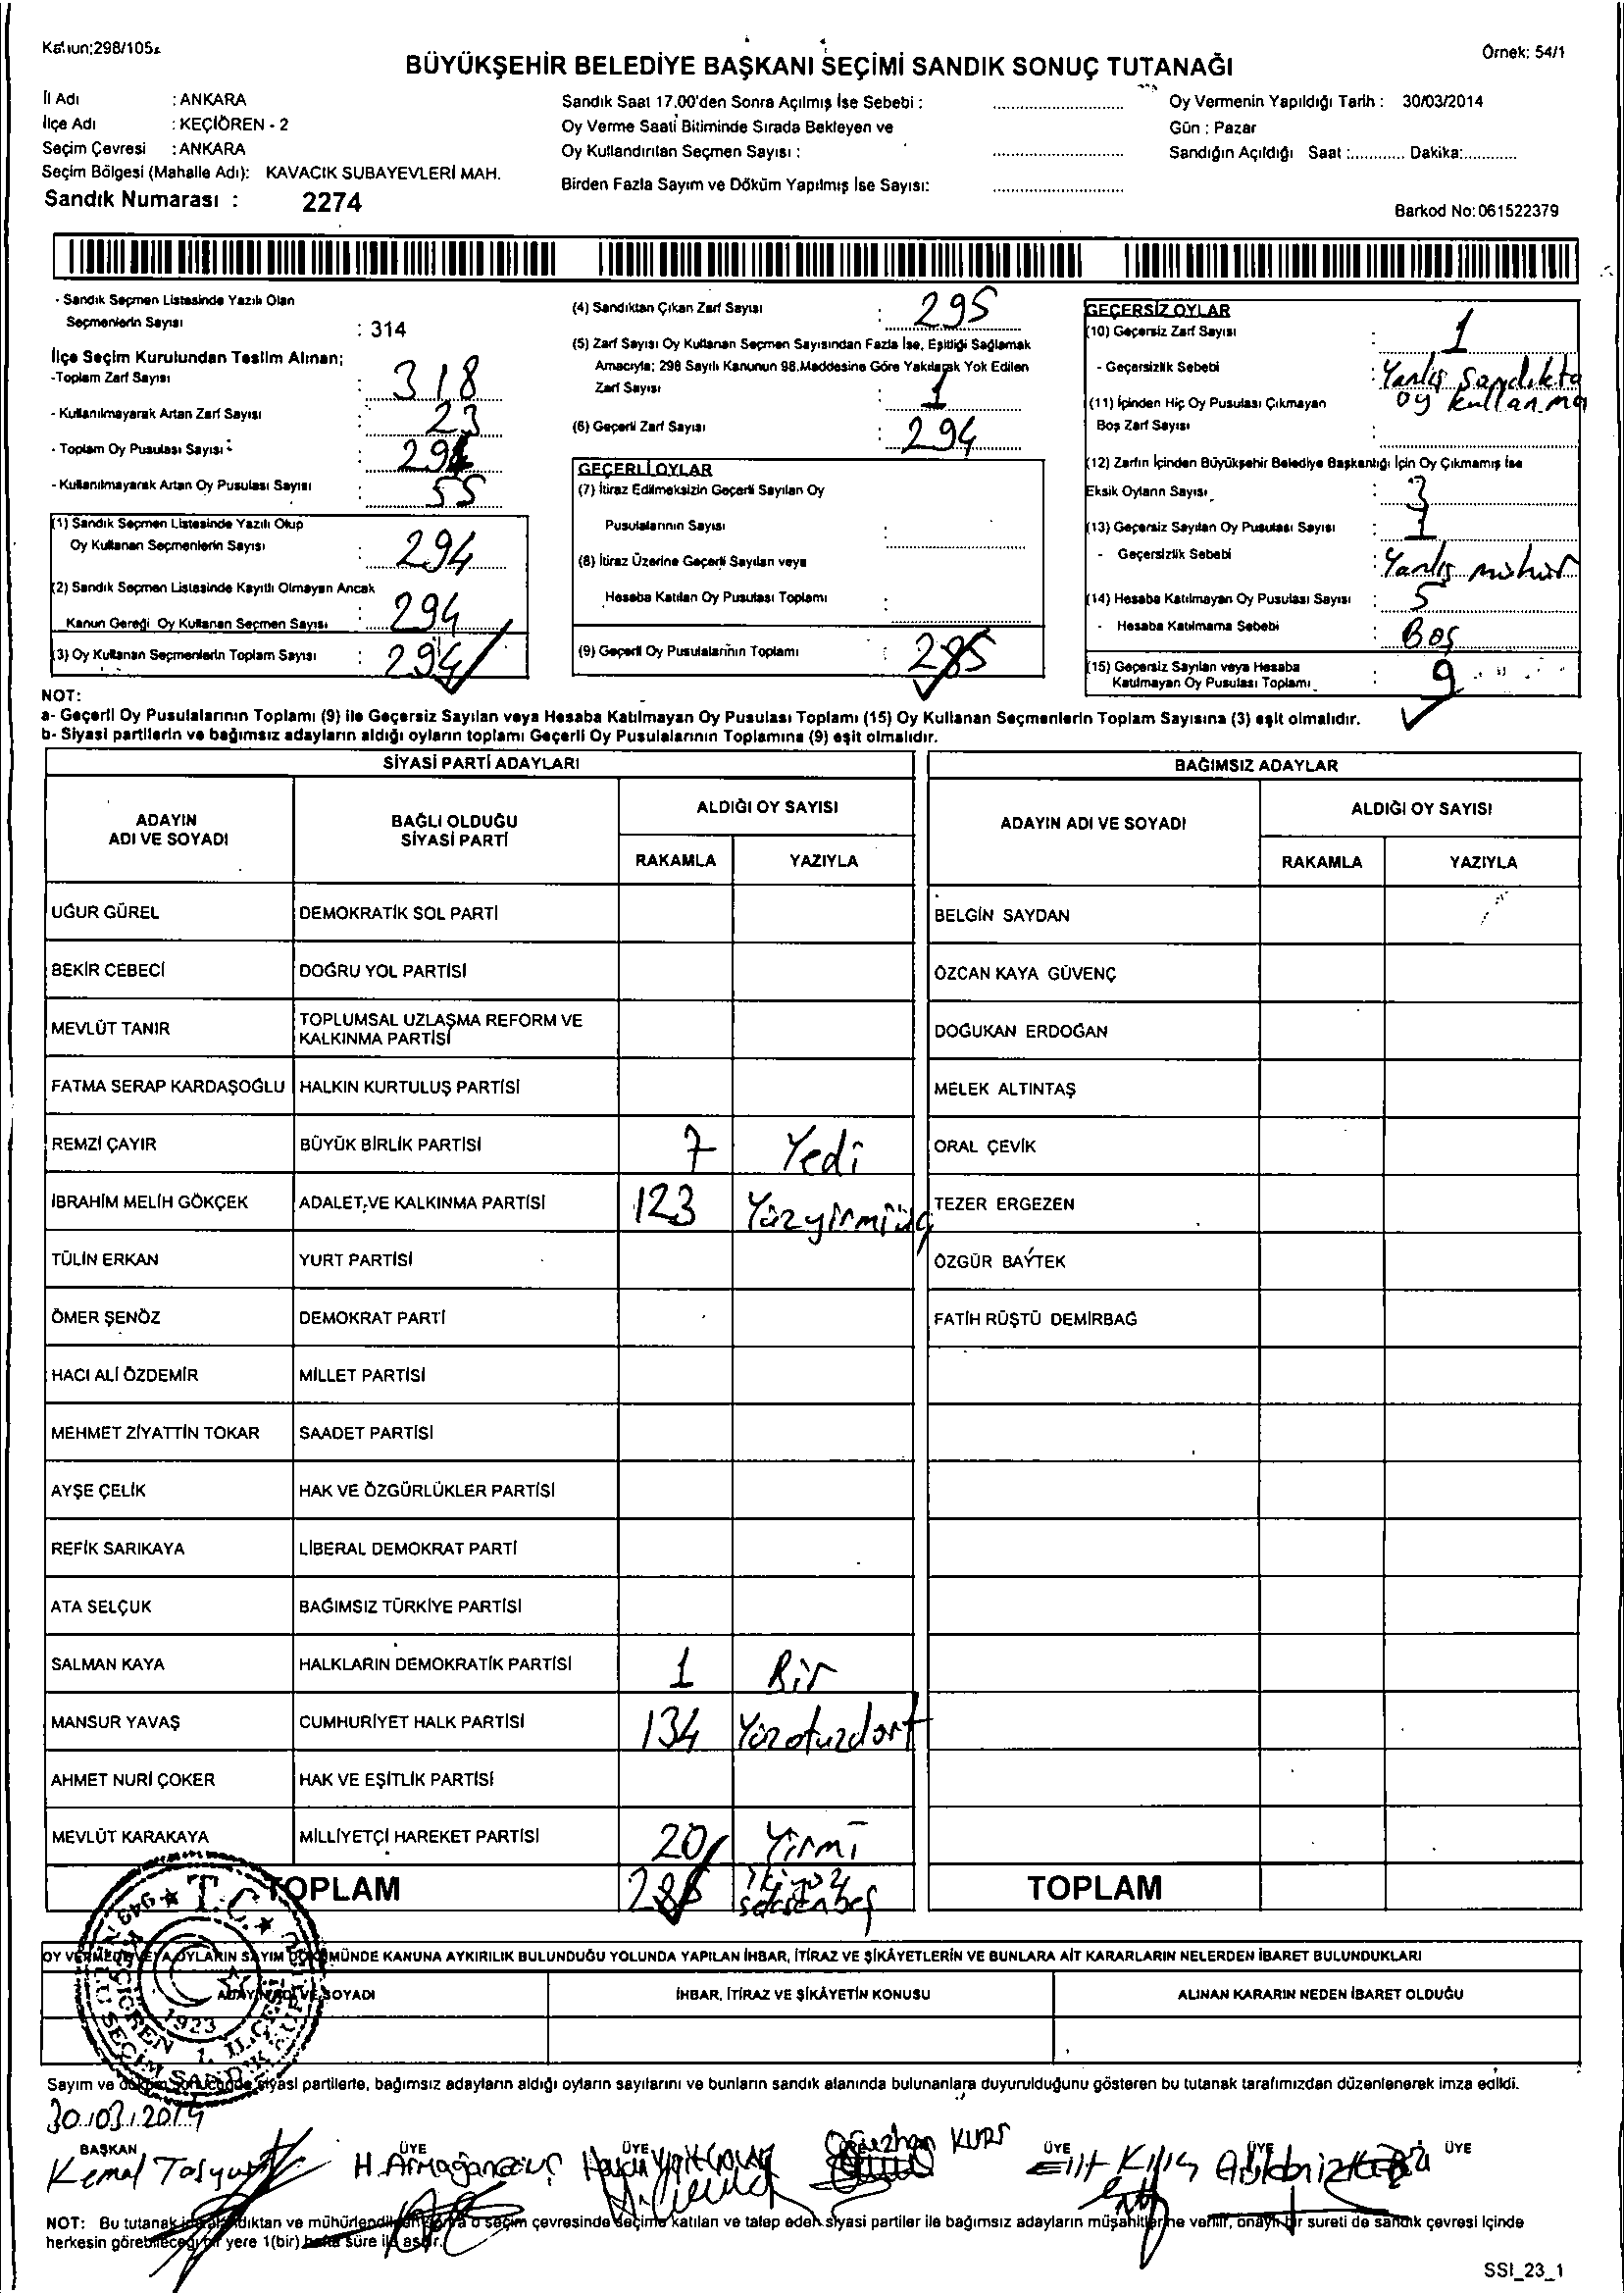 Kanun:298/105
Örnek: 54/1
BÜYÜKŞEHİR BELEDİYE BAŞKANI SEÇİMİ SANDIK SONUÇ TUTANAĞI
İl Adı : ANKARA
İlçe Adı : KEÇİÖREN - 2
Seçim Çevresi : ANKARA
Seçim Bölgesi (Mahalle Adı): KAVACIK SUBAYEVLERİ MAH.
Sandık Numarası : 2274
Sandık Saat 17.00'den Sonra Açılmış İse Sebebi :
Oy Verme Saati Bitiminde Sırada Bekleyen ve
Oy Kullandırılan Seçmen Sayısı :
Birden Fazla Sayım ve Döküm Yapılmış İse Sayısı:
Oy Vermenin Yapıldığı Tarih : 30/03/2014
Gün : Pazar
Sandığın Açıldığı Saat :............ Dakika:............
Barkod No:061522379
- Sandık Seçmen Listesinde Yazılı Olan
Seçmenlerin Sayısı : 314
İlçe Seçim Kurulundan Teslim Alınan;
-Toplam Zarf Sayısı : 318
- Kullanılmayarak Artan Zarf Sayısı : 23
- Toplam Oy Pusulası Sayısı :
- Kullanılmayarak Artan Oy Pusulası Sayısı : 55
(1) Sandık Seçmen Listesinde Yazılı Olup
Oy Kullanan Seçmenlerin Sayısı : 294
(2) Sandık Seçmen Listesinde Kayıtlı Olmayan Ancak
Kanun Gereği Oy Kullanan Seçmen Sayısı : 294
(3) Oy Kullanan Seçmenlerin Toplam Sayısı : 294
(4) Sandıktan Çıkan Zarf Sayısı : 295
(5) Zarf Sayısı Oy Kullanan Seçmen Sayısından Fazla İse, Eşitliği Sağlamak
Amacıyla; 298 Sayılı Kanunun 98.Maddesine Göre Yakılarak Yok Edilen
Zarf Sayısı : 1
(6) Geçerli Zarf Sayısı : 294
GEÇERLİ OYLAR
(7) İtiraz Edilmeksizin Geçerli Sayılan Oy
Pusulalarının Sayısı :
(8) İtiraz Üzerine Geçerli Sayılan veya
Hesaba Katılan Oy Pusulası Toplamı :
(9) Geçerli Oy Pusulalarının Toplamı : 285
GEÇERSİZ OYLAR
(10) Geçersiz Zarf Sayısı : 1
- Geçersizlik Sebebi : Yanlış Sandıkta
oy kullanma
(11) İçinden Hiç Oy Pusulası Çıkmayan
Boş Zarf Sayısı :
(12) Zarfın İçinden Büyükşehir Belediye Başkanlığı İçin Oy Çıkmamış İse
Eksik Oyların Sayısı : 3
(13) Geçersiz Sayılan Oy Pusulası Sayısı : 1
- Geçersizlik Sebebi : Yanlış mühür
(14) Hesaba Katılmayan Oy Pusulası Sayısı : 5
- Hesaba Katılmama Sebebi : Boş
(15) Geçersiz Sayılan veya Hesaba
Katılmayan Oy Pusulası Toplamı : 9
NOT:
a- Geçerli Oy Pusulalarının Toplamı (9) ile Geçersiz Sayılan veya Hesaba Katılmayan Oy Pusulası Toplamı (15) Oy Kullanan Seçmenlerin Toplam Sayısına (3) eşit olmalıdır.
b- Siyasi partilerin ve bağımsız adayların aldığı oyların toplamı Geçerli Oy Pusulalarının Toplamına (9) eşit olmalıdır.
SİYASİ PARTİ ADAYLARI
ADAYIN ADI VE SOYADI
BAĞLI OLDUĞU SİYASİ PARTİ
ALDIĞI OY SAYISI
RAKAMLA YAZIYLA
UĞUR GÜREL DEMOKRATİK SOL PARTİ
BEKİR CEBECİ DOĞRU YOL PARTİSİ
MEVLÜT TANIR TOPLUMSAL UZLAŞMA REFORM VE
KALKINMA PARTİSİ
FATMA SERAP KARDAŞOĞLU HALKIN KURTULUŞ PARTİSİ
REMZİ ÇAYIR BÜYÜK BİRLİK PARTİSİ 7 Yedi
İBRAHİM MELİH GÖKÇEK ADALET VE KALKINMA PARTİSİ 123 Yüzyirmiüç
TÜLİN ERKAN YURT PARTİSİ
ÖMER ŞENÖZ DEMOKRAT PARTİ
HACI ALİ ÖZDEMİR MİLLET PARTİSİ
MEHMET ZİYATTİN TOKAR SAADET PARTİSİ
AYŞE ÇELİK HAK VE ÖZGÜRLÜKLER PARTİSİ
REFİK SARIKAYA LİBERAL DEMOKRAT PARTİ
ATA SELÇUK BAĞIMSIZ TÜRKİYE PARTİSİ
SALMAN KAYA HALKLARIN DEMOKRATİK PARTİSİ 1 Bir
MANSUR YAVAŞ CUMHURİYET HALK PARTİSİ 134 Yüzotuzdört
AHMET NURİ ÇOKER HAK VE EŞİTLİK PARTİSİ
MEVLÜT KARAKAYA MİLLİYETÇİ HAREKET PARTİSİ 20 Yirmi
TOPLAM 285 ikiyüz
seksenbeş
BAĞIMSIZ ADAYLAR
ADAYIN ADI VE SOYADI
ALDIĞI OY SAYISI
RAKAMLA YAZIYLA
BELGİN SAYDAN
ÖZCAN KAYA GÜVENÇ
DOĞUKAN ERDOĞAN
MELEK ALTINTAŞ
ORAL ÇEVİK
TEZER ERGEZEN
ÖZGÜR BAYTEK
FATİH RÜŞTÜ DEMİRBAĞ
TOPLAM
OY VERMEDE VEYA OYLARIN SAYIM DÖKÜMÜNDE KANUNA AYKIRILIK BULUNDUĞU YOLUNDA YAPILAN İHBAR, İTİRAZ VE ŞİKÂYETLERİN VE BUNLARA AİT KARARLARIN NELERDEN İBARET BULUNDUKLARI
ADAYIN ADI VE SOYADI
İHBAR, İTİRAZ VE ŞİKÂYETİN KONUSU
ALINAN KARARIN NEDEN İBARET OLDUĞU
T.C.
1923
Sayım ve döküm sonucunda siyasi partilerle, bağımsız adayların aldığı oyların sayılarını ve bunların sandık alanında bulunanlara duyurulduğunu gösteren bu tutanak tarafımızdan düzenlenerek imza edildi.
30.03.2014
BAŞKAN ÜYE ÜYE ÜYE ÜYE ÜYE
Kemal Oğuzhan KURS Elif Kılıç
NOT: Bu tutanak ve o seçim çevresinde seçime katılan ve talep eden siyasi partiler ile bağımsız adayların müşahitlerine verilir, onaylı bir sureti de sandık çevresi içinde
herkesin görebileceği bir yere 1(bir) hafta süre ile asılır.
SSI_23_1